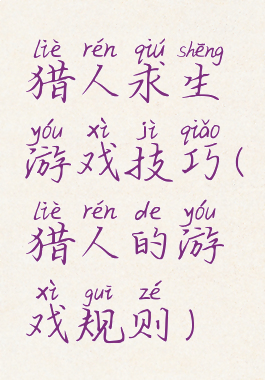 liè rén qiú shēng
猎人求生
yóu xì jì qiǎo
游戏技巧(
liè rén de yóu
猎人的游
xì guī zé
戏规则)